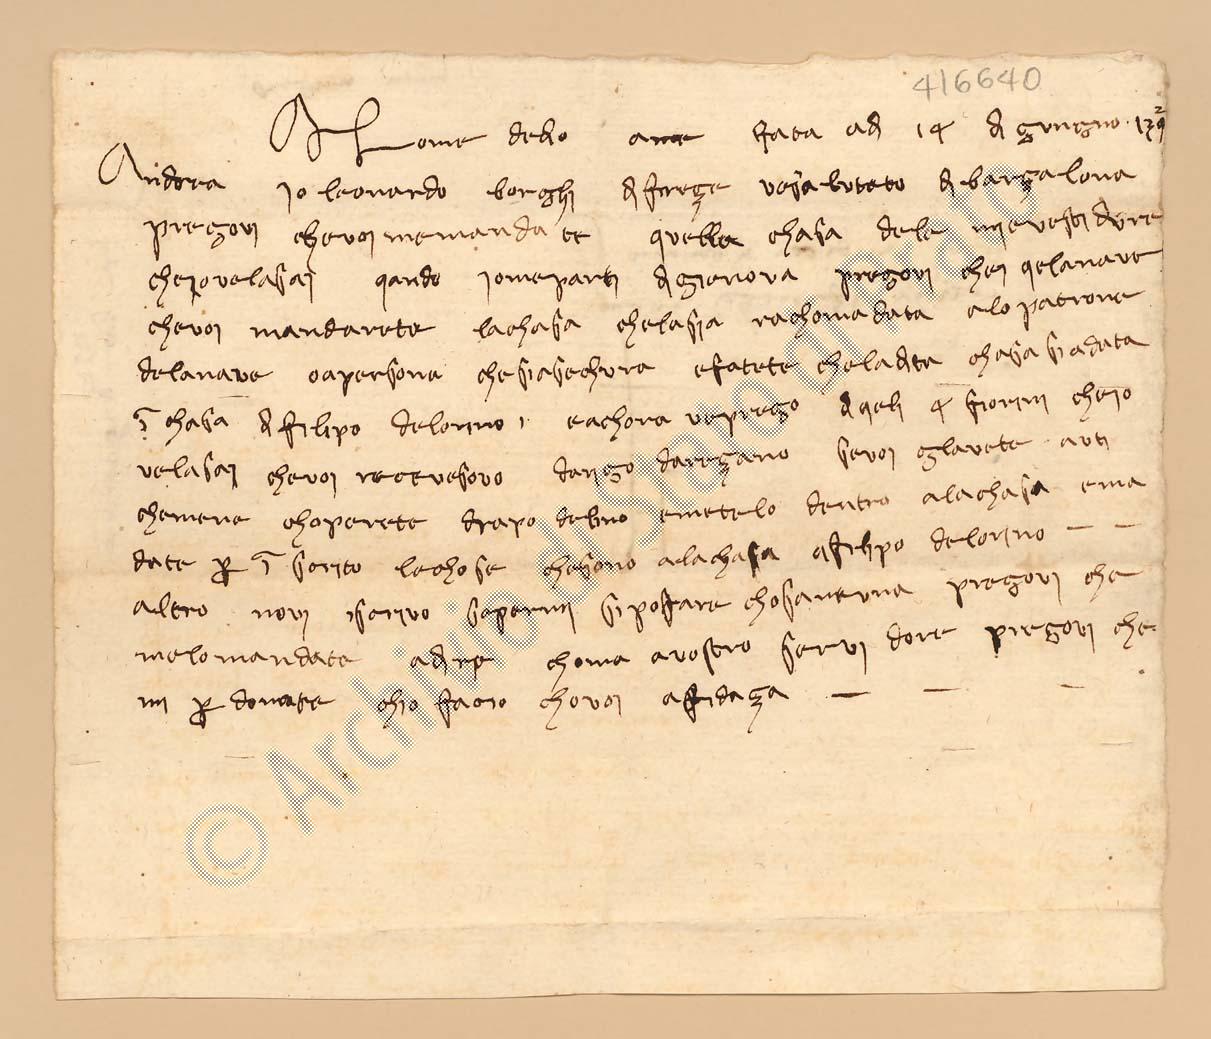 416640
Al nome de dio ame fata adi 14 di gungno 1392
Andrea io leonardo borghi di fireze ve saluteto di barzalona
pregovi che voi me mandate quella chasa dele mie vestidure
che io ve lasai qando io me parti di gienova pregovi che i qela nave
che voi mandarete la chasa che la sia rachomadata a lo patrone
dela nave o a persona che sia sechura e fatete che la dita chasa sia data
i chasa di filipo de lorino e anchora ve prego di qeli 4 fiorini che io
ve lasai che voi recevesovo darigo darezano se voi gl avete auti
che mene choperete drapo de lino e metelo dentro a la chasa e ma
date p i scrito le chose che sono a la chasa a filipo de lorino
altro novi iscrivo se per mi si po fare chosa nevna pregovi che
me lo mandate a dire choma a vostro servidore pregovi che
mi p donate ch io facio cho voi a fidaza
© Archivio di Stato di Prato